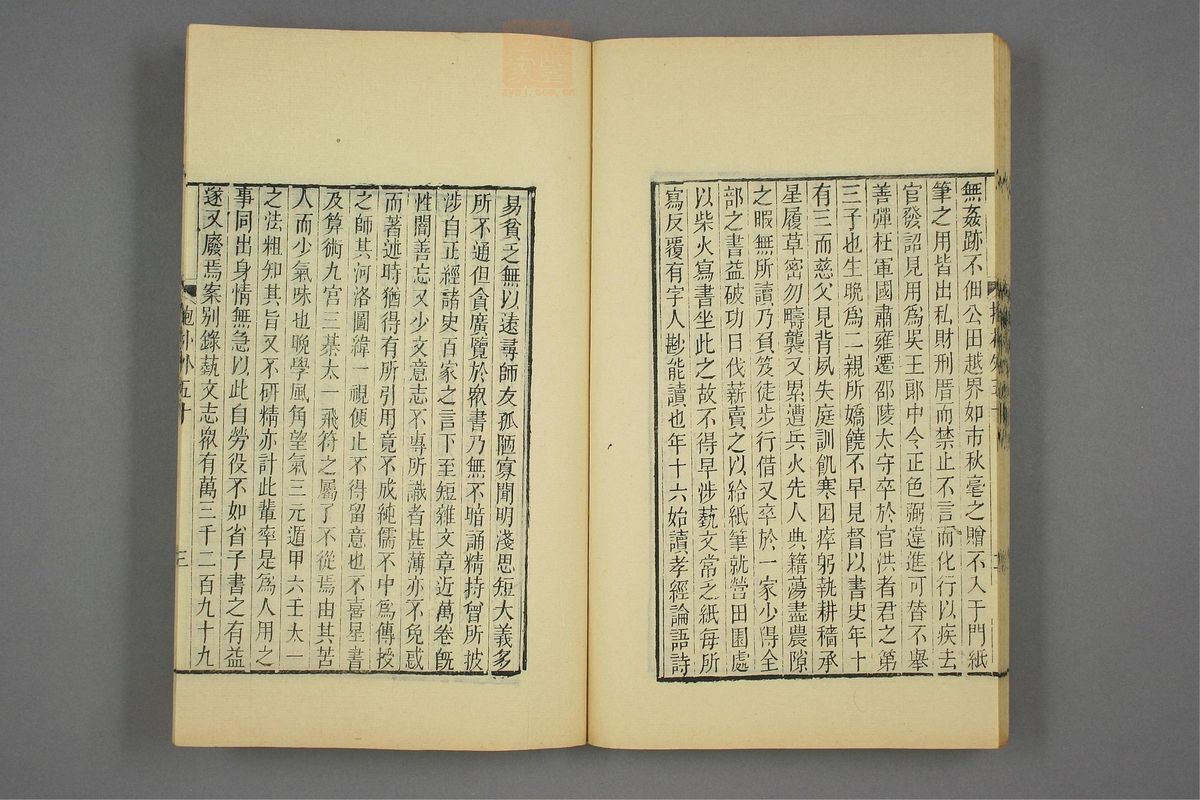 無姦跡不佃公田越界如市秋毫之贈不入于門紙
筆之用皆出私財刑厝而禁止不言而化行以疾去
官發詔見用爲吳王郞中令正色弼違進可替不舉
善彈枉軍國肅雍遷邵陵太守卒於官洪者君之第
三子也生晩爲二親所嬌饒不早見督以書史年十
有三而慈父見背夙失庭訓飢寒困瘁躬執耕穡承
星履草密勿疇襲又累遭兵火先人典籍蕩盡農隙
之暇無所讀乃負笈徒步行借又卒於一家少得全
部之書益破功日伐薪賣之以給紙筆就營田園處
以柴火寫書坐此之故不得早涉藝文常乏紙每所
寫反覆有字人尠能讀也年十六始讀孝經論語詩
易貧乏無以遠尋師友孤陋寡聞明淺思短大義多
所不通但貪廣覽於衆書乃無不暗誦精持曾所披
涉自正經諸史百家之言下至短雜文章近萬卷旣
性闇善忘又少文意志不專所識者甚薄亦不免惑
而著述時猶得有所引用竟不成純儒不中爲傳授
之師其河洛圖緯一視便止不得留意也不喜星書
及算術九宫三棊太一飛符之屬了不從焉由其苦
人而少氣味也晩學風角望氣三元遁甲六壬太一
之法粗知其旨又不硏精亦計此輩率是爲人用之
事同出身情無急以此自勞役不如省子書之有益
遂又廢焉案别錄藝文志衆有萬三千二百九十九
抱朴外五十
三
zybj.com.cn